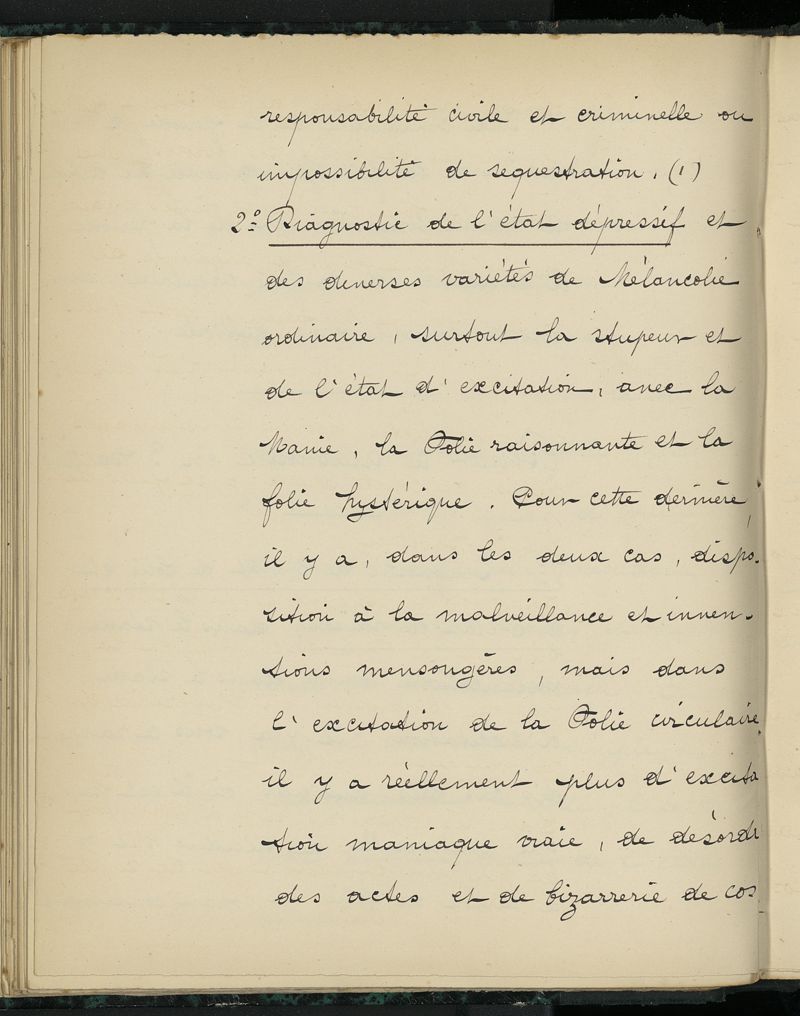 responsabilité civile et criminelle ou
impossibilité de sequestration. (1)
2º Diagnostic de l'état dépressif et
des diverses variétés de Mélancolie
ordinaire, surtout la stupeur et
de l'état d'excitation, avec la
Manie, la Folie raisonnante et la
folie hystérique. Pour cette dernière,
il y a, dans les deux cas, dispo-
sition à la malveillance et inven-
tions mensongères, mais dans
l'excitation de la Folie circulaire,
il y a réellement plus d'excita
tion maniaque vraie, de désordr
des actes et de bizarrerie de cos